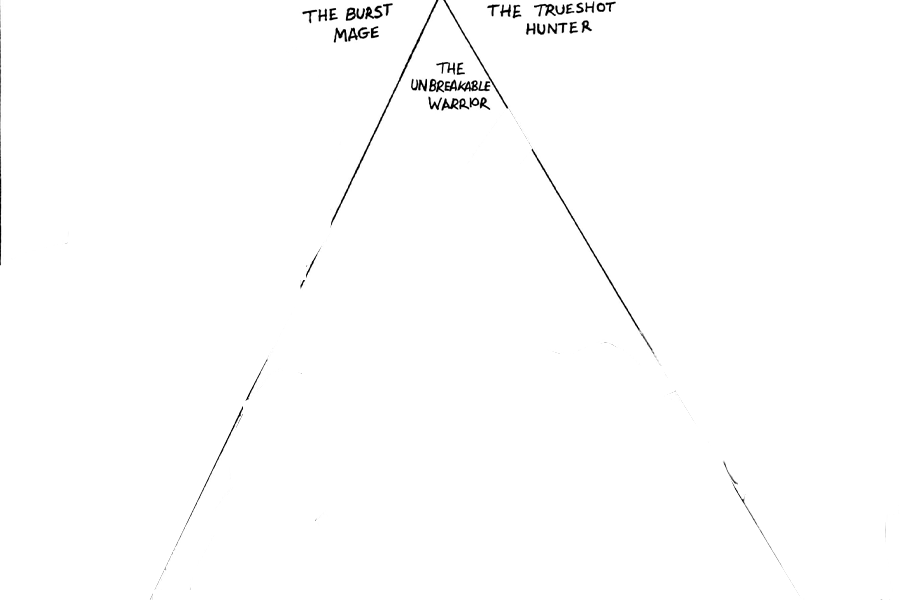 THE BURST
MAGE
THE TRUESHOT
HUNTER
THE
UNBREAKABLE
WARRIOR